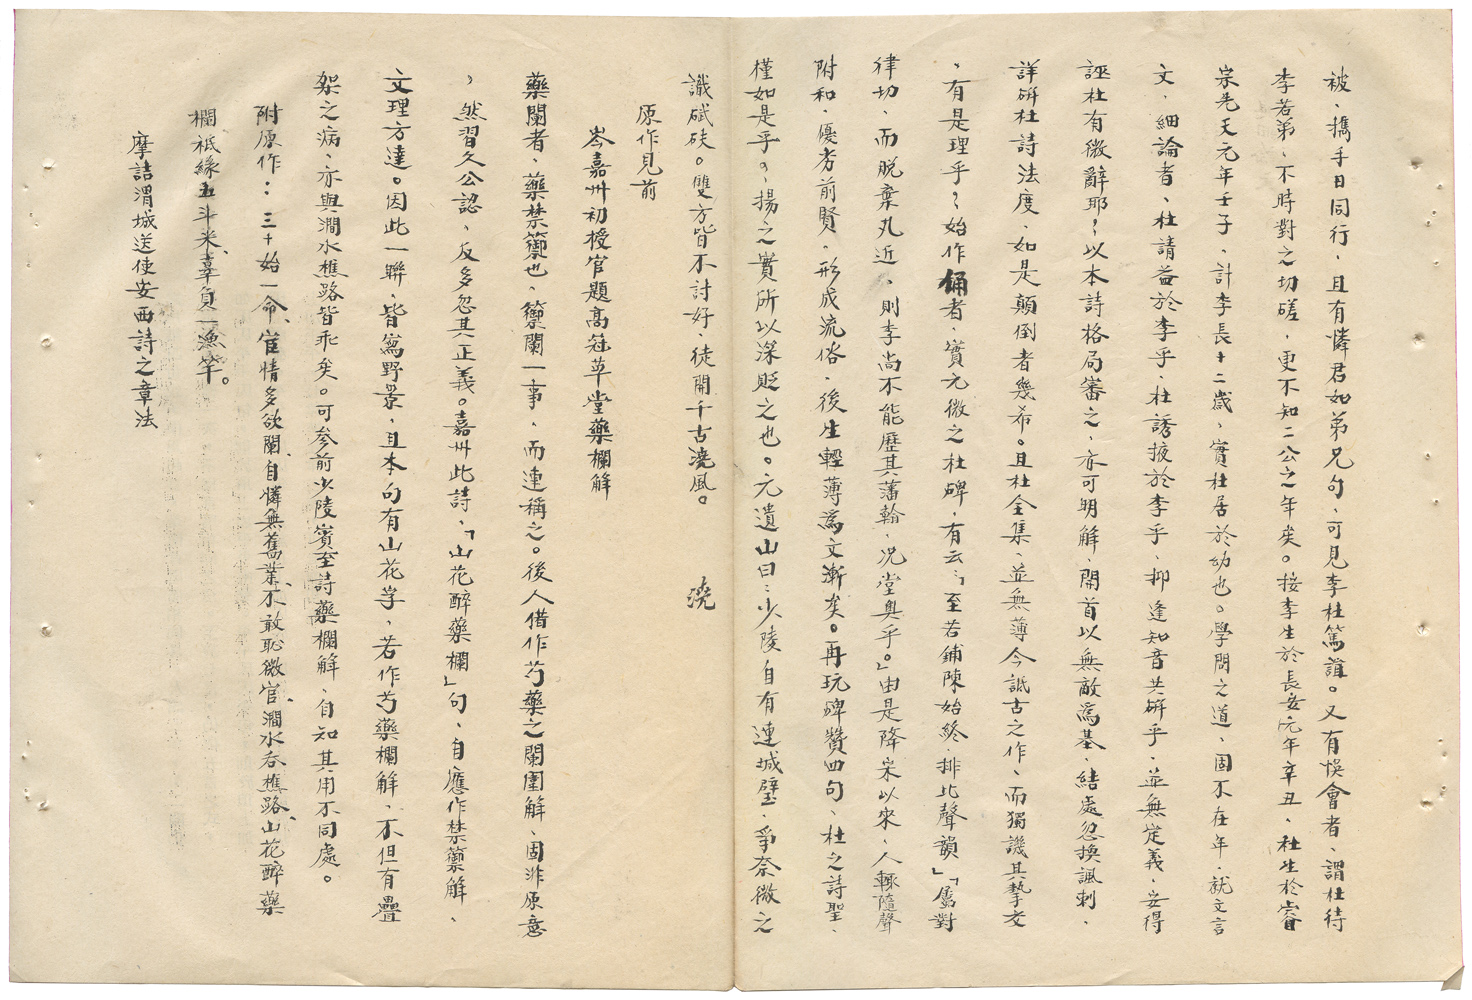 被、攜手日同行、且有憐君如弟兄句、可見李杜篤誼。又有悞會者、謂杜待
李若弟、不時對之切磋、更不知二公之年矣。按李生於長安元年辛丑、杜生於睿
宗先天元年壬子、計李長十二歲、實杜居於幼也。學問之道、固不在年、就文言
文、細論者、杜請益於李乎、杜誘掖於李乎、抑逢知音共研乎、並無定義、安得
誣杜有微辭耶？以本詩格局審之、亦可明解、開首以無敵為基、結處忽換諷刺、
詳研杜詩法度、如是顛倒者幾希。且杜全集、並無薄今詆古之作、而獨譏其摯友
、有是理乎？始作俑者、實元微之杜碑、有云：「至若鋪陳始終、排比聲韻」「屬對
律切、而脫棄凡近、則李尚不能歷其藩翰、況堂奧乎。」由是降宋以來、人輒隨聲
附和、優劣前賢、形成流俗、後生輕薄為文漸矣。再玩碑贊四句、杜之詩聖、
槿如是乎？揚之實所以深貶之也。元遺山曰：少陵自有連城璧、爭奈微之
識碔砆。雙方皆不討好、徒開千古澆風。 澆
原作見前
岑嘉州初授官題高冠草堂藥欄解
藥闌者、藥禁籞也、籞闌一事、而連稱之。後人借作芍藥之闌圍解、固非原意
、然習久公認、反多忽其正義。嘉州此詩、「山花醉藥欄」句、自應作禁籞解、
文理方達。因此一聯、皆寫野景、且本句有山花字、若作芍藥欄解、不但有疊
架之病、亦與澗水樵路皆乖矣。可參前少陵賓至詩藥欄解、自知其用不同處。
附原作：三十始一命、宦情多欲闌、自憐無舊業、不敢恥微官、澗水吞樵路、山花醉藥
欄、祗緣五斗米、辜負一漁竿。
摩詰渭城送使安西詩之章法